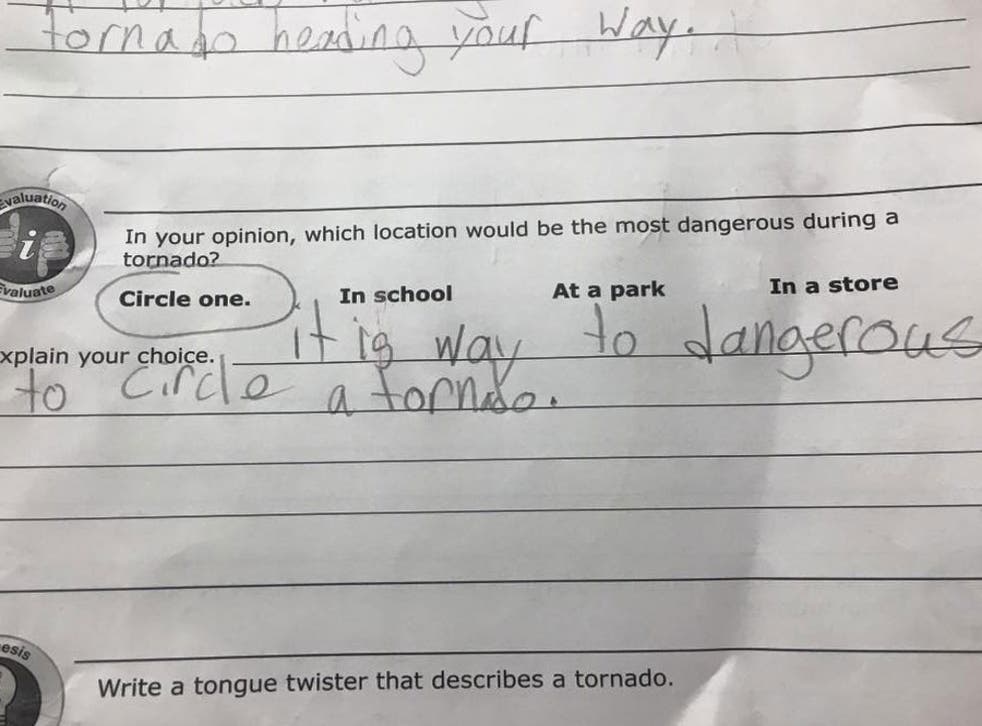 tornado heading your way.
Evaluation
i
In your opinion, which location would be the most dangerous during a
tornado?
Evaluate
Circle one. In school At a park In a store
xplain your choice. it is way to dangerous
to circle a tornado.
esis
Write a tongue twister that describes a tornado.